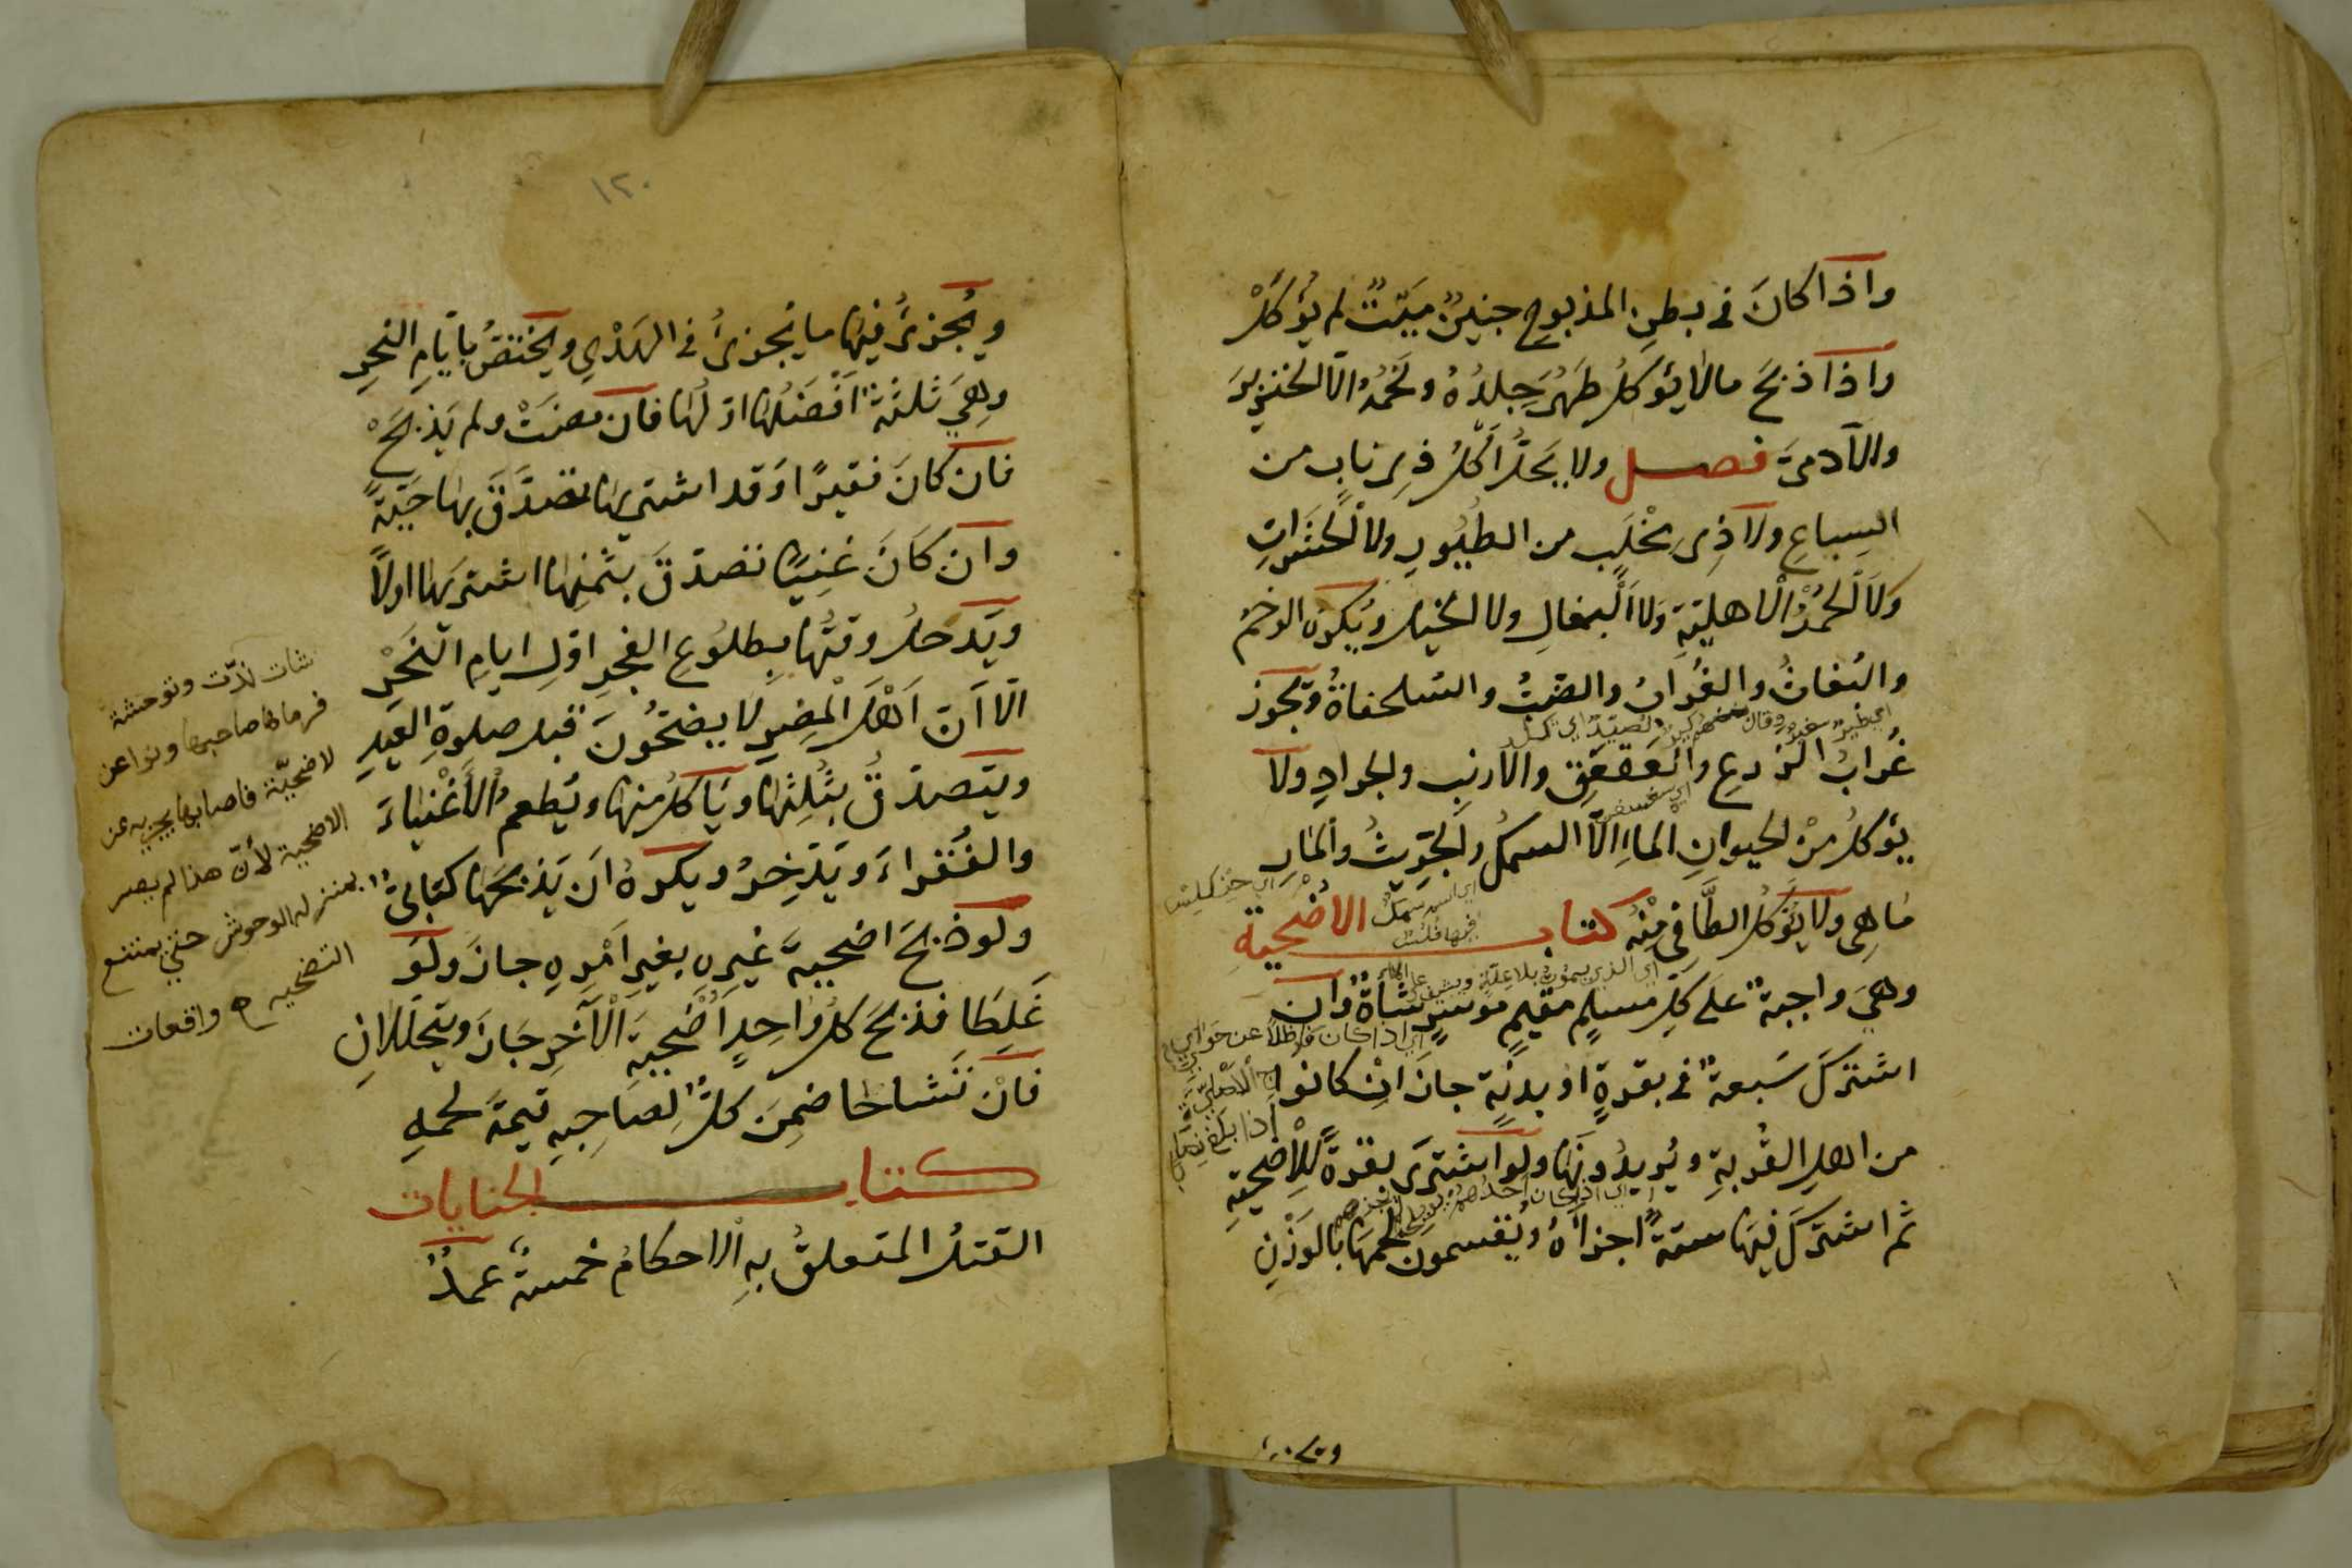 واذا كانَ في بطنِ المذبوحِ جنينٌ ميّتٌ لم يُؤكَلْ
واذا ذبحَ مالا يؤكلُ طَهُرَ جِلدُهُ ولحمُهُ الّا الخنزيرَ
والآدميَّ فصل ولا يَحلُّ اَكلُ ذِي نابٍ من
السباعِ ولا ذِي مِخْلَبٍ من الطيُورِ ولا الحَشَراتِ
ولا الحُمُرُ الْاهليّةِ ولا البغالِ ولا الخيل ويُكره الرخمُ
والبُغاثُ والغُرابُ والضّبُّ والسّلحفاةُ ويجوز
غُرابُ الزرعِ والعَقعَقِ والارنبِ والجرادِ ولا
يؤكلُ مِنْ الحيوانِ الماءِ الّا السمكُ والجِرّيثُ والمار
مَاهِي ولا يُؤكلُ الطّافِي مِنْهُ كتاب الاضحيةِ
وهيَ واجبةٌ علَى كلِّ مسلمٍ مقيمٍ موسرٍ شاةٌ وان
اشتركَ سَبعةٌ في بقرةٍ او بدنةٍ جازَ اِنْ كانوا
من اهلِ القُربةِ ويُريدُونَها ولو اشترَى بقرةً لِلاضحيةِ
ثم اشتركَ فيهَا ستةً اجزأهُ ويقسمونَ لحمهَا بالوَزْنِ
ويُجزئُ فيها ما يُجزئُ في الهَدْيِ ويختصُّ بايّامِ النحرِ
وهِيَ ثلثةٌ افْضَلُها اوّلُها فان مضَتْ ولم يَذبحْ
فان كانَ فقيرًا وَقد اشتريها تصدَّقَ بها حَيّةً
وان كَانَ غنِيًّا تصدّقَ بثمنِها اشتريها اولًا
ويَدخلُ وقتُها بِطلُوعِ الفجرِ اوّلِ ايامِ النحْرِ
الّا اَنّ اَهْلَ الْمِصرِ لا يضحُّونَ قبل صلوةِ العيدِ
ويتصدّقُ بثُلثِها ويَاكلُ منها ويُطعمُ الْأَغْنياءَ
والفُقراءَ ويَدّخِرُ ويكرهُ اَن يَذبحَها كتابىٌّ
ولو ذبحَ اضحيةَ غيرِهِ بغيرِ اَمْرِهِ جازَ ولَو
غَلِطَا فذبحَ كلُّ واحِدٍ اُضْحيةَ الْآخرِ جَازَ ويتحلّلانِ
فانْ تَشاحّا ضمِنَ كلٌّ لصَاحِبِهِ قيمةَ لحمهِ
كتاب الجنايات
القتلُ المتعلقُ بهِ الاحكامُ خمسةٌ عمدٌ
١٢٠
شات ندّت وتوحشة
فرماها صاحبها ونوا عن
لاضحيّة فاصابها يجزيه عن
الاضحية لأنّ هذا لم يصر
بمنزله الوحوش حتى يمتنع
التضحيه واقعات